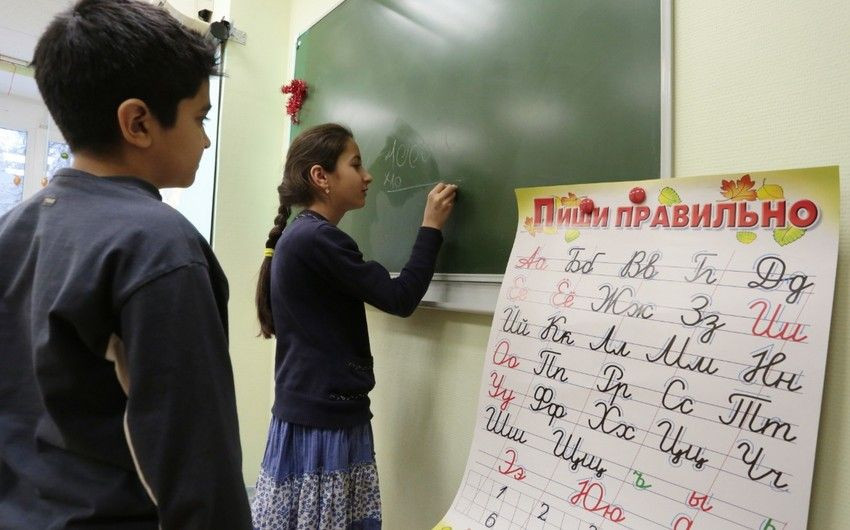 1000
40
Пиши правильно
Аа Бб Вв Гг Дд
Ее Ёё Жж Зз Ии
Йй Кк Лл Мм Нн
Оо Пп Рр Сс Тт
Уу Фф Хх Цц Чч
Шш Щщ ъ ы ь
Ээ Юю Яя
1 2
6